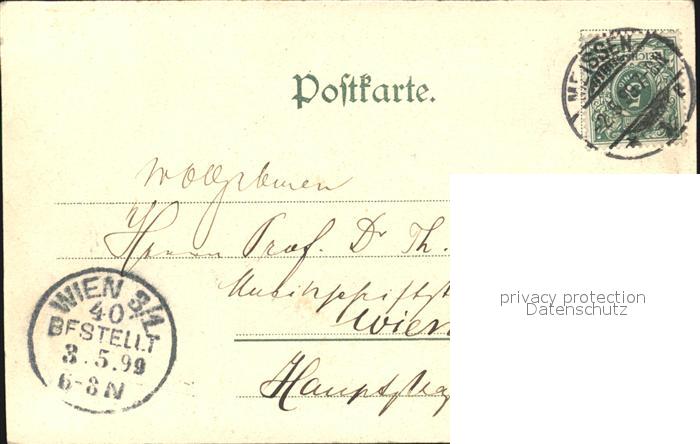 Postkarte.
MEISSEN
Wohlgeboren
Herrn Prof. Dr Th.
Wien
Hauptstra
WIEN 3/1
40
BESTELLT
3.5.99
6-8 N
privacy protection
Datenschutz